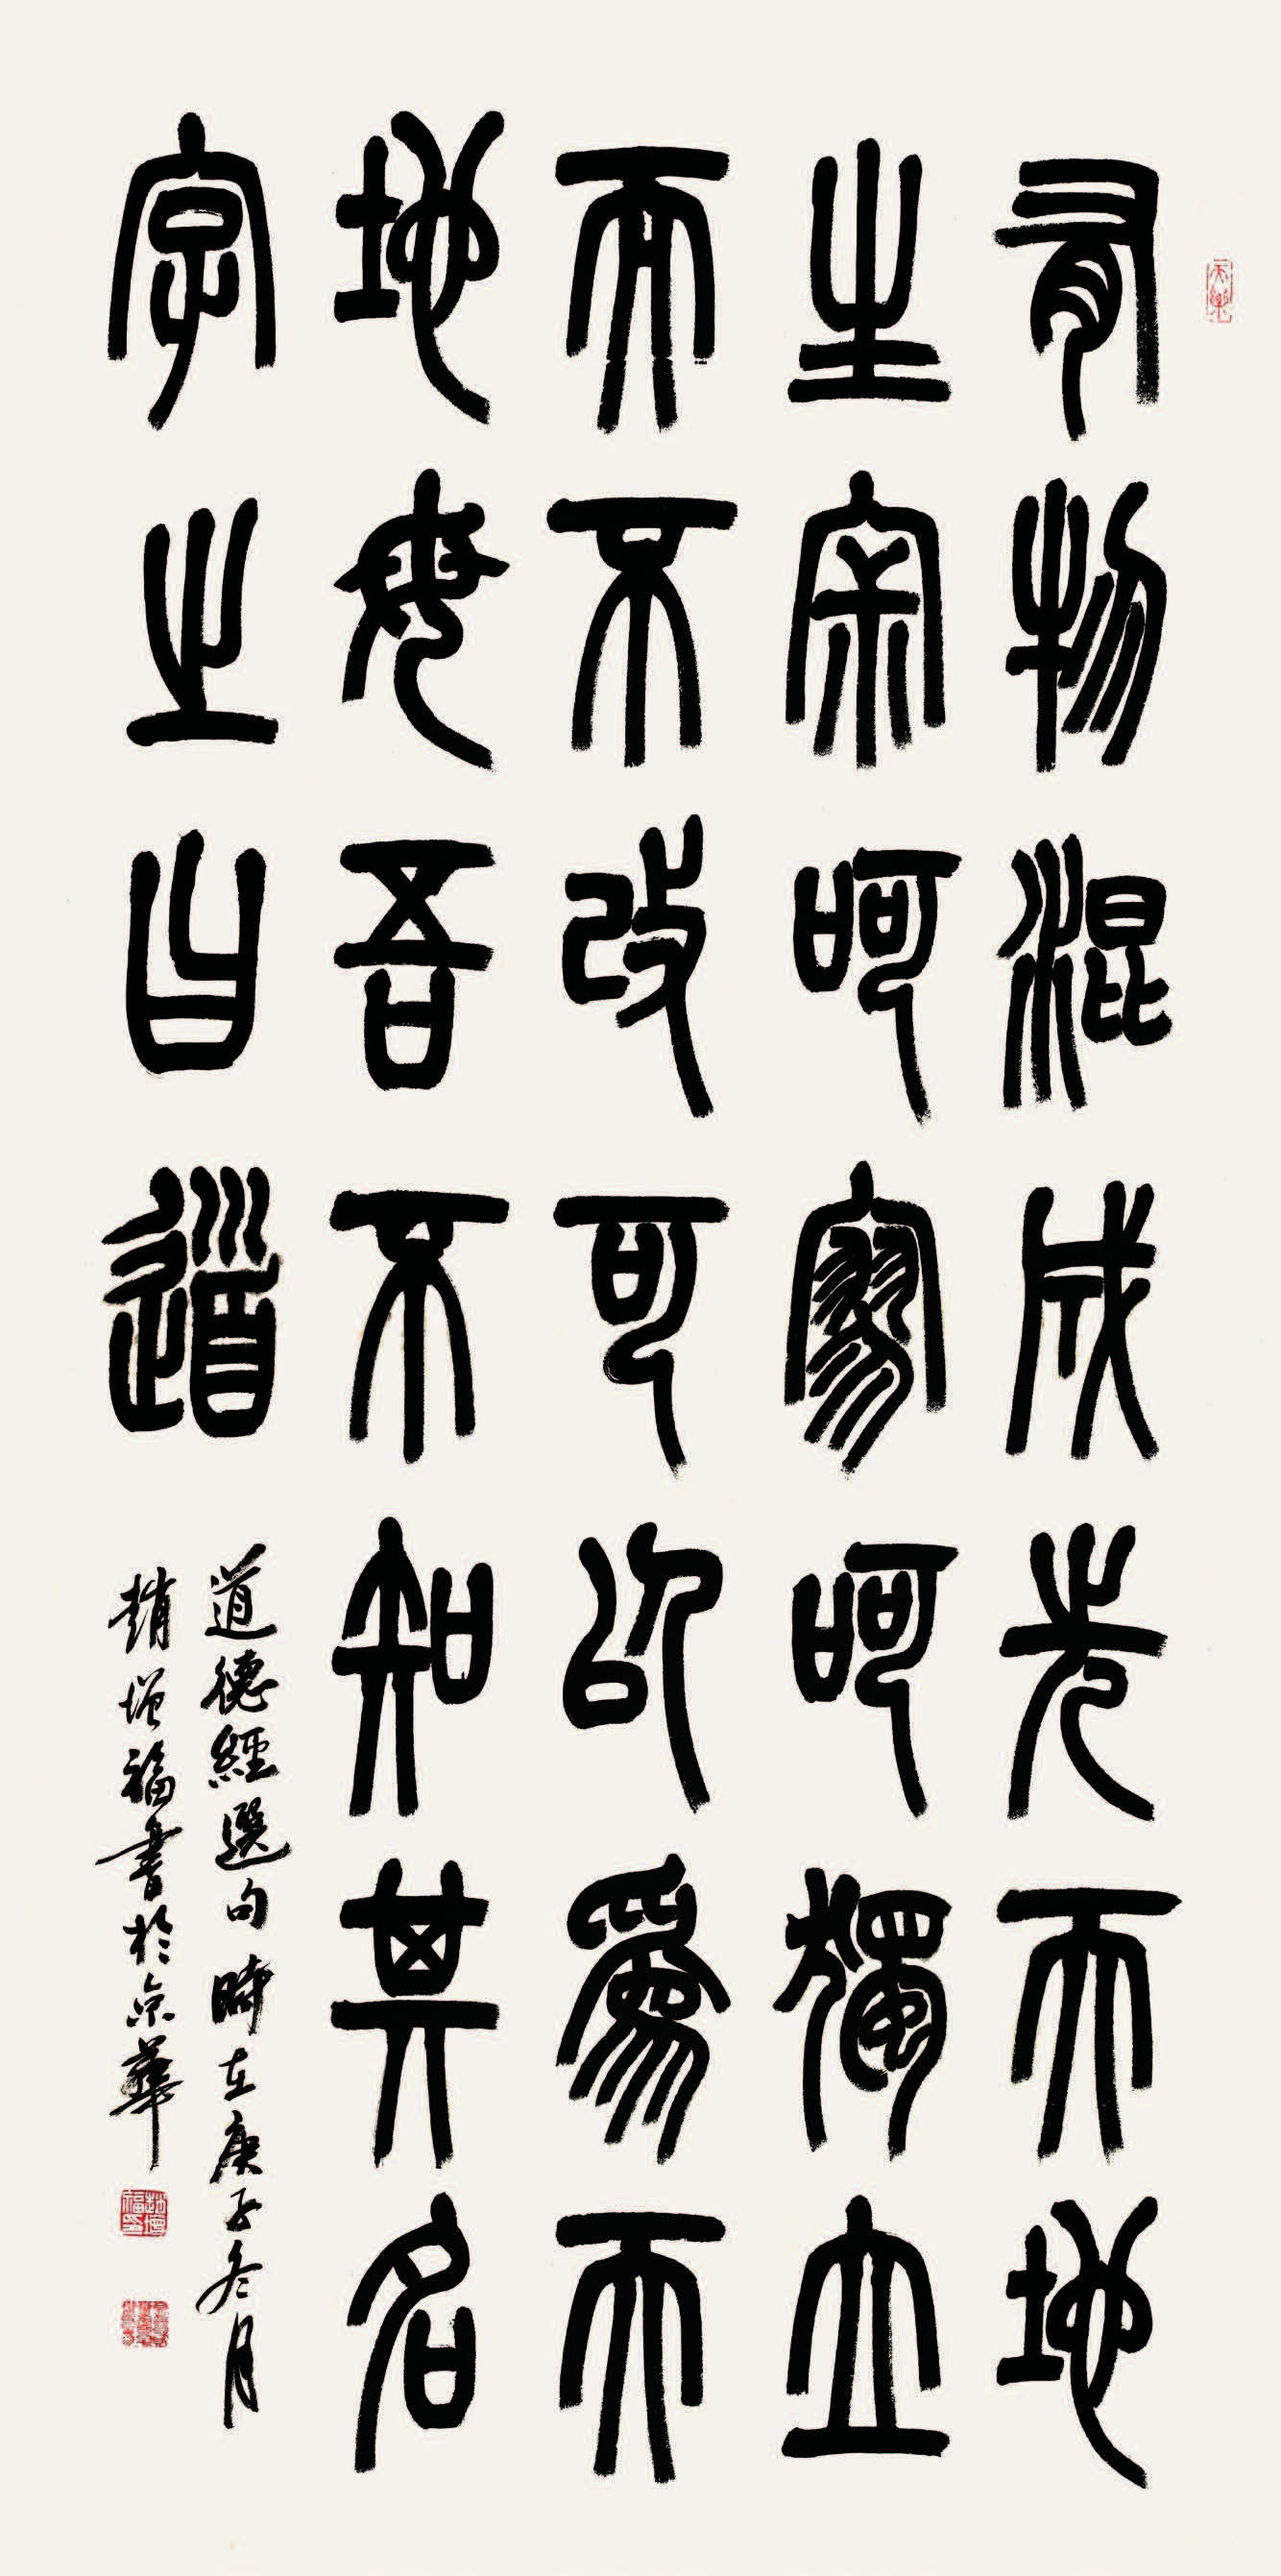 有物混成先天地
生寂呵寥呵獨立
而不改可以為天
地母吾不知其名
字之曰道
道德經選句時在庚子冬月
趙增福書於京華
天樂
趙增福印